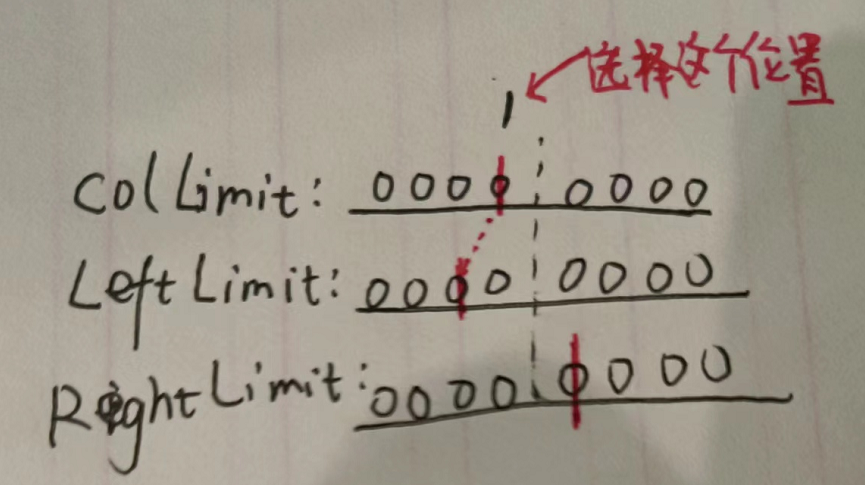 选择这个位置
1
Col Limit: 0000 0000
Left Limit: 0000 0000
Right Limit: 0000 0000